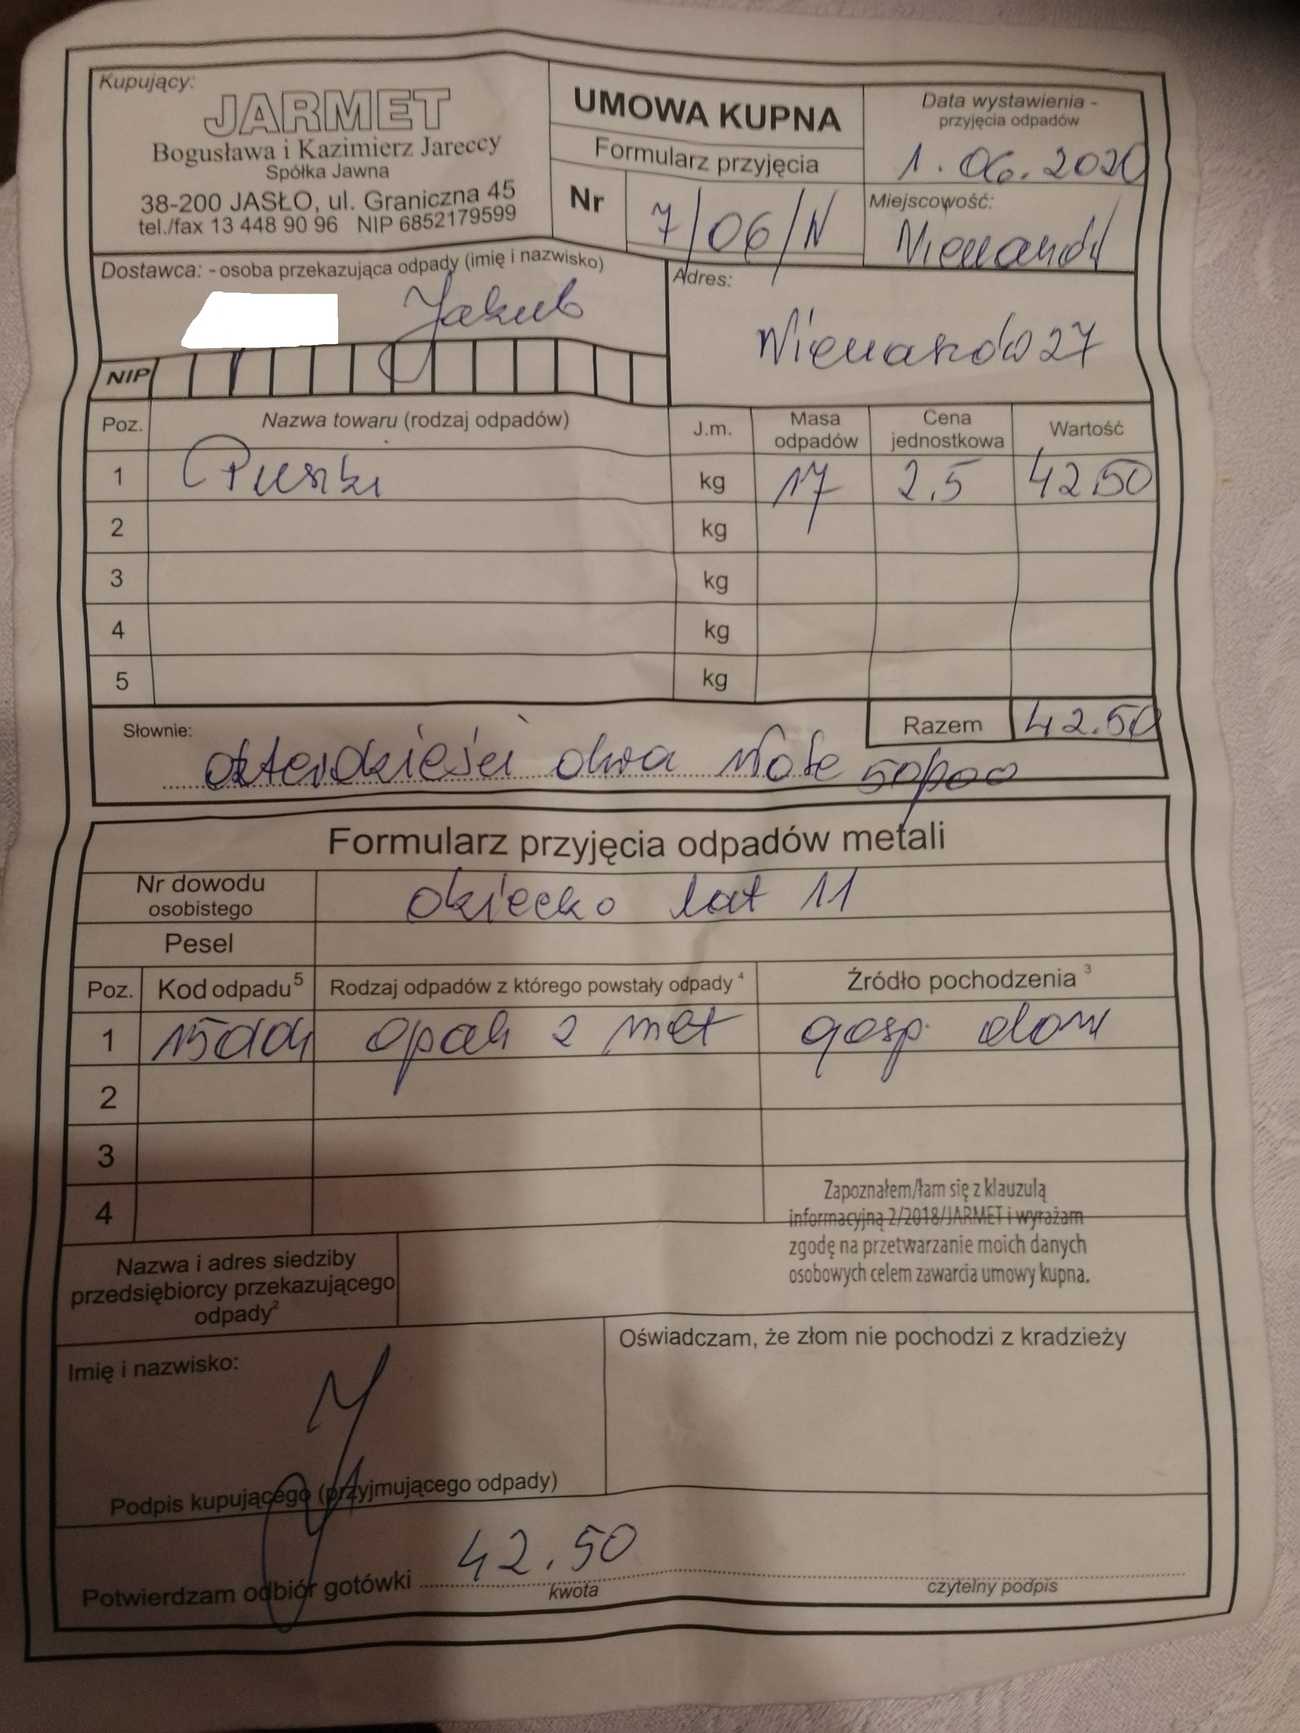 Kupujący:
JARMET
Bogusława i Kazimierz Jareccy
Spółka Jawna
38-200 JASŁO, ul. Graniczna 45
tel./fax 13 448 90 96 NIP 6852179599
UMOWA KUPNA
Formularz przyjęcia
Nr 7/06/N
Data wystawienia -
przyjęcia odpadów
1.06.2020
Miejscowość:
Dostawca: - osoba przekazująca odpady (imię i nazwisko)
Jakub
NIP
Adres:
27
Poz. Nazwa towaru (rodzaj odpadów) J.m. Masa odpadów Cena jednostkowa Wartość
1 Puszki kg 17 2,5 42.50
2 kg
3 kg
4 kg
5 kg
Razem 42.50
Słownie: czterdzieści dwa złote 50/100
Formularz przyjęcia odpadów metali
Nr dowodu
osobistego
dziecko lat 11
Pesel
Poz. Kod odpadu⁵ Rodzaj odpadów z którego powstały odpady⁴ Źródło pochodzenia³
1 150104 opak z met gosp. dom
2
3
4
Zapoznałem/łam się z klauzulą
informacyjną 2/2018/JARMET i wyrażam
zgodę na przetwarzanie moich danych
osobowych celem zawarcia umowy kupna.
Nazwa i adres siedziby
przedsiębiorcy przekazującego
odpady²
Imię i nazwisko:
Podpis kupującego (przyjmującego odpady)
Oświadczam, że złom nie pochodzi z kradzieży
Potwierdzam odbiór gotówki 42.50
kwota
czytelny podpis